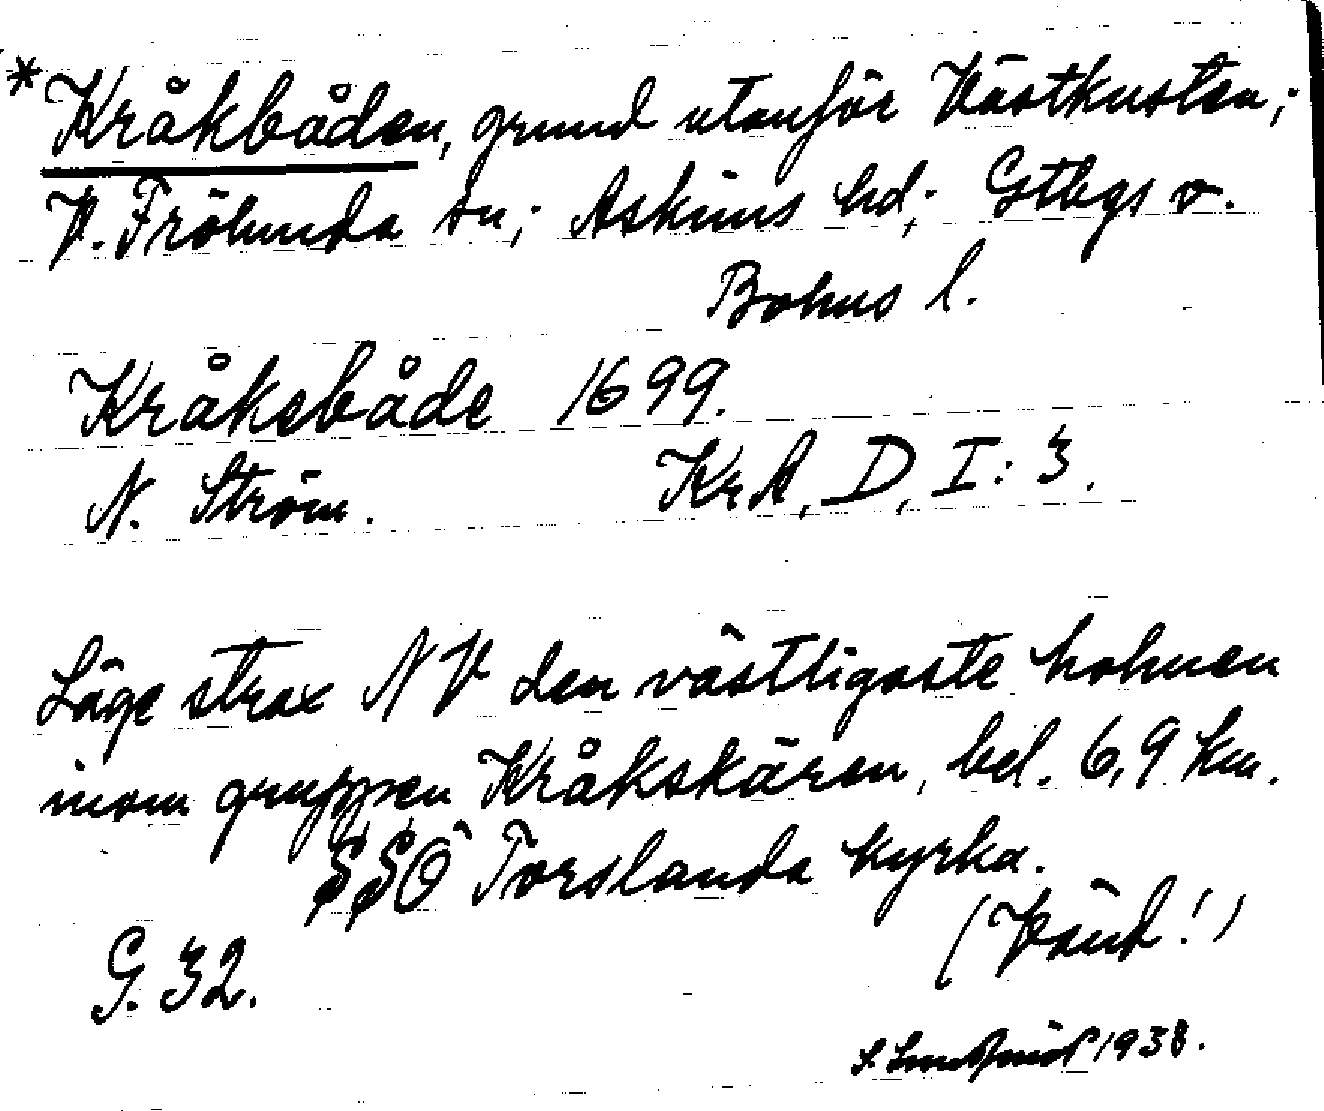 *Kråkbåden, grund utanför Västkusten;
V. Frölunda sn; Askims hd; Gtbgs o.
Bohus l.
Kråkebåde 1699.
N. Ström. KrA, D, I: 3.
Läge strax NV den västligaste holmen
inom gruppen Kråkskären, bel. 6,9 km.
SSO Torslanda kyrka.
(Vänd!)
G. 32.
1938.